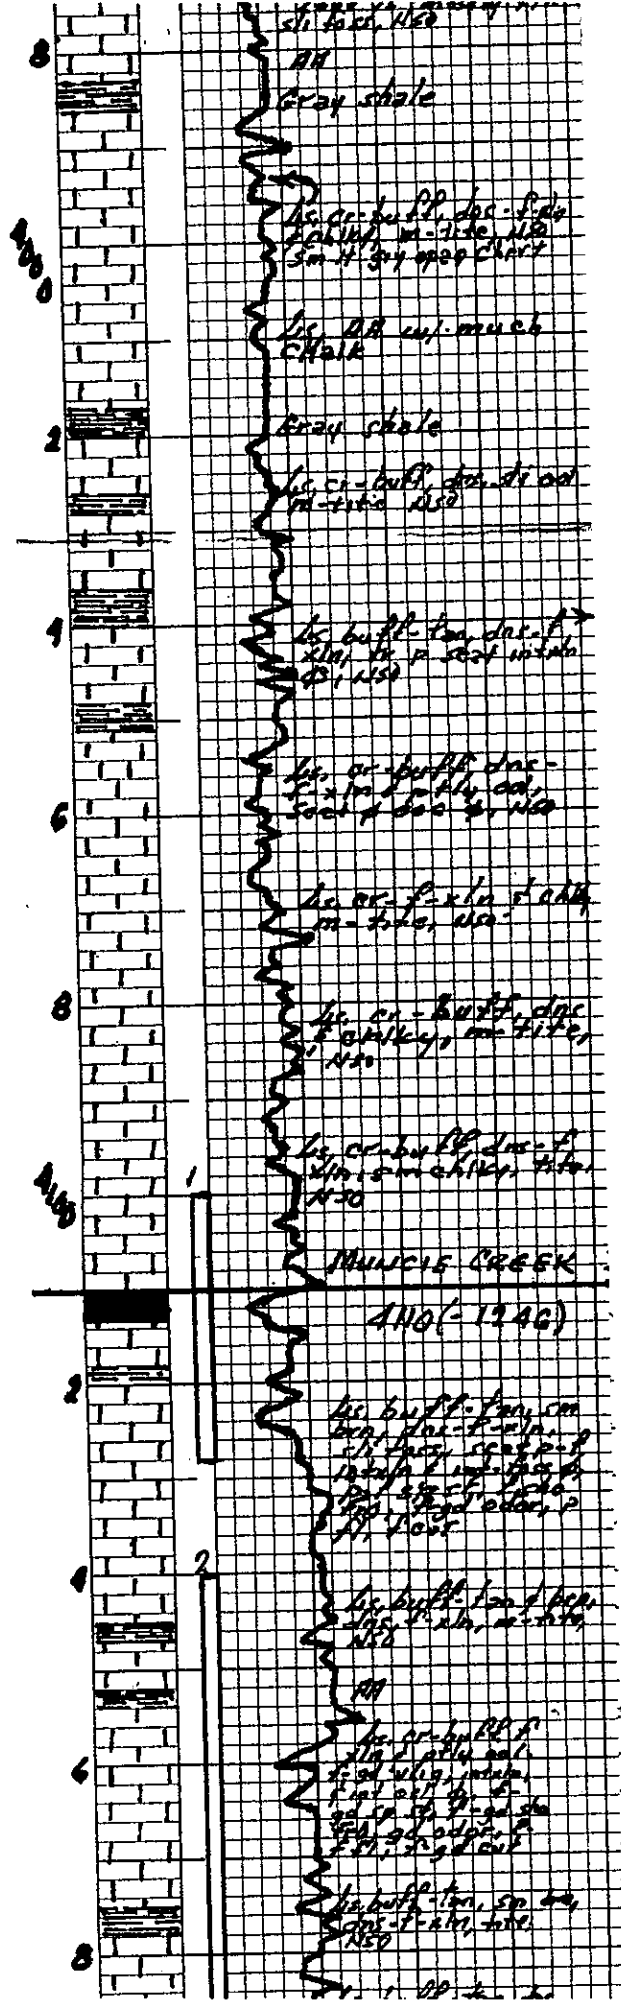 sli foss, NSO
8
AA
Gray shale
Ls, cr-buff, dns-f-xln
& chlky, m-tite, NSO
sm lt gry opaq chert
4000
Ls, AA w/ much
chalk
2
Gray shale
Ls, cr-buff, dns, sli ool
m-tite NSO
4
Ls, buff-tan, dns-f
xln, tr p scat intxln
Ø, NSO
Ls, cr-buff dns-
f-xln & ptly ool,
6
NSO
Ls, cr-f-xln & chlky
m-tite, NSO
8
Ls, cr-buff, dns
& chlky, m-tite,
NSO
Ls, cr-buff, dns-f
xln, sm chlky, tite,
4100
1
NSO
MUNCIE CREEK
4110 (-1246)
2
Ls, buff-tan, sm
brn, dns-f-xln,
sli foss, scat p-f
intxln & int-foss Ø,
f-gd odor, p
fl, f cut
4
2
Ls, buff-tan & brn,
dns, f-xln, m-tite,
NSO
AA
Ls, cr-buff, f
xln & ptly ool,
6
f-gd vug, intxln,
gd sp st, f-gd sho
gd odor,
f fl, f-gd cut
Ls, buff-tan, sm brn,
dns-f-xln, tite,
NSO
8